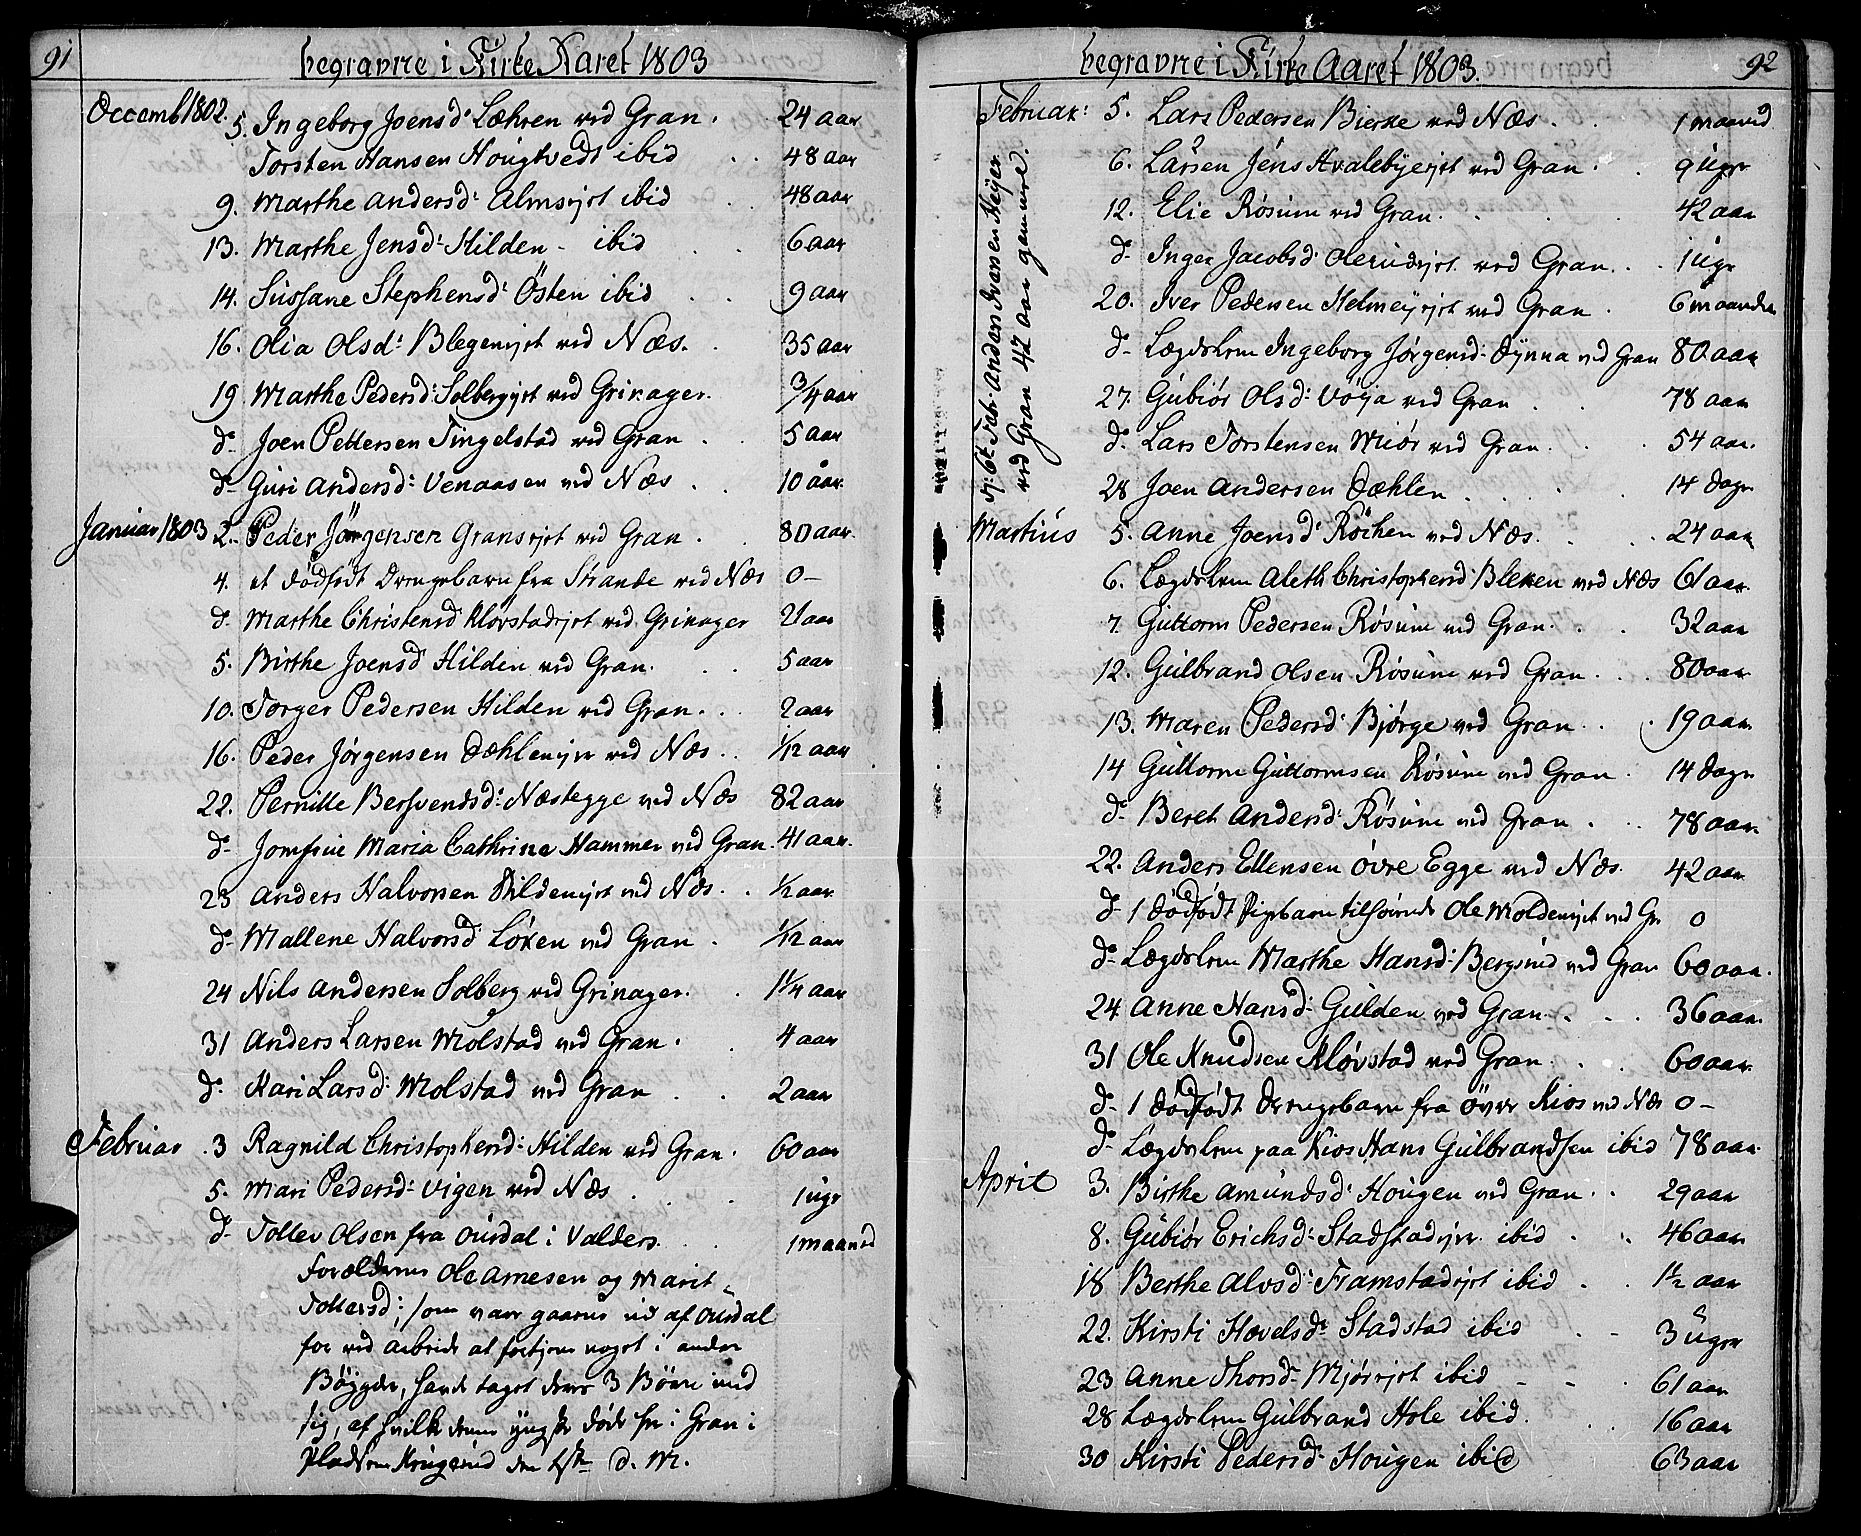 91
begravne i Kirke Aaret 1803
Decemb 1802. 5. Ingeborg Joensd: Læhren ved Gran. 24 aar
Torsten Hansen Hougtvedt ibid 48 aar
9. Marthe Andersd: Almsejet ibid 48 aar
13. Marthe Jensd: Hilden - ibid 6 aar
14. Sussane Stephensd: Östen ibid 9 aar
16. Olia Olsd: Blegenejet ved Næs. 35 aar
19 Marthe Pedersd: Solbergejet ved Grinager. 3/4 aar
d- Joen Pettersen Tingelstad ved Gran 5 aar
d- Guri Andersd: Venaasen ved Næs 10 aar
Januar 1803 2. Peder Jörgensen Gransejet ved Gran 80 aar
4. et dödfödt Drengebarn fra Strande ved Næs 0-
d- Marthe Christensd Klövstadejet ved Grinager 21 aar
5. Birthe Joensd Hilden ved Gran. 5 aar
10. Torger Pedersen Hilden ved Gran. 2 aar
16. Peder Jörgensen Dæhlenejer ved Næs 1/12 aar
22. Pernille Bersvendsd: Næstegge ved Næs 82 aar
d- Jomfrue Maria Cathrine Hammer ved Gran. 41 aar.
23 Anders Halvorsen Hildenejet ved Næs. 1/2 aar
d- Mallene Halvorsd Löken ved Gran. 1/12 aar
24 Nils Andersen Solberg ved Grinager. 1 1/4 aar
31 Anders Larsen Molstad ved Gran. 4 aar
d. Kari Larsd: Molstad ved Gran 2 aar
Februar 3 Ragnild Christophersd: Hilden ved Gran. 60 aar
5. Mari Pedersd: Vigen ved Næs 1 uge
d- Tollev Olsen fra Ourdal i Valders 1 maaned
Forældrene Ole Arnesen og Marit
Tollersd: som vare gaaene ud af Ourdal
for ved Arbeide at fortjene noget i andre
Böjgder, havde taget deres 3 Börn med
sig, af hvilke denne yngste döde her i Gran i
Pladsen Krugerud den 1ste d. M.
92
begravne i Kirke Aaret 1803.
Februar: 5. Lars Pedersen Bierke ved Næs. 1 maaned
6. Larsen Jens Hvalebyejet ved Gran. 9 uger
12. Elie Rösum ved Gran. 42 aar
d- Inger Jacobsd: Olerudejet ved Gran. 1 uge
20. Iver Pedersen Helmejejet ved Gran 6 maander
d- Lægdslem Ingeborg Jörgensd: Dynna ved Gran 80 aar
27. Gubiör Olsd: Vöya ved Gran 78 aar
d. Lars Torstensen Miör ved Gran. 54 aar.
28 Joen Andersen Dæhlen 14 dage
7: 6te Feb. Anders Iversen Heyer
ved Gran 42 aar gammel.
Martius 5. Anne Joensd: Röcken ved Næs. 24 aar
6. Lægdslem Aleth Christophersd: Bleken ved Næs 61 aar
7. Guttorm Pedersen Rösum ved Gran. 32 aar
12. Gulbrand Olsen Rösum ved Gran 80 aar
13. Maren Pedersd: Bjørge ved Gran 19 aar
14 Guttorm Guttormsen Rösum ved Gran. 14 dage
d- Beret Andersd: Rösum ved Gran. 78 aar
22. Anders Ellensen övre Egge ved Næs. 42 aar
d- 1 dödfödt Pigebarn tilhörende Ole Moldenejet ved Gr. 0
d- Lægdslem Marthe Hansd: Bergsrud ved Gran 60 aar.
24 Anne Hansd: Gulden ved Gran 36 aar.
31 Ole Knudsen Klövstad ved Gran 60 aar.
d- 1 dödfödt Drengebarn fra Övre Kios ved Næs 0-
d- Lægdslem paa Kios Hans Gulbrandsen ibid 78 aar.
April 3. Birthe Amundsd: Hougen ved Gran. 29 aar
8. Gubiör Erichsd: Stadstadejer ibid 46 aar
18 Berthe Alvsd: Framstadejet ibid 1 1/2 aar
22. Kirsti Hovelsd: Stadstad ibid 3 uger
23 Anne Thorsd- Mjörejet ibid 61 aar
28 Lægdslem Gulbrand Hole ibid. 16 aar
30 Kirsti Pedersd- Hougen ibid 63 aar